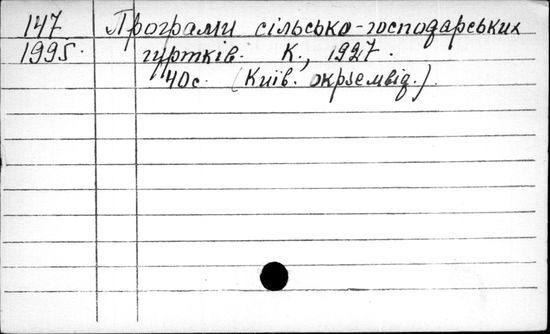 147 Програми сільсько-господарських
1995 гуртків. К., 1927.
40с. (Київ. окрземвід.).